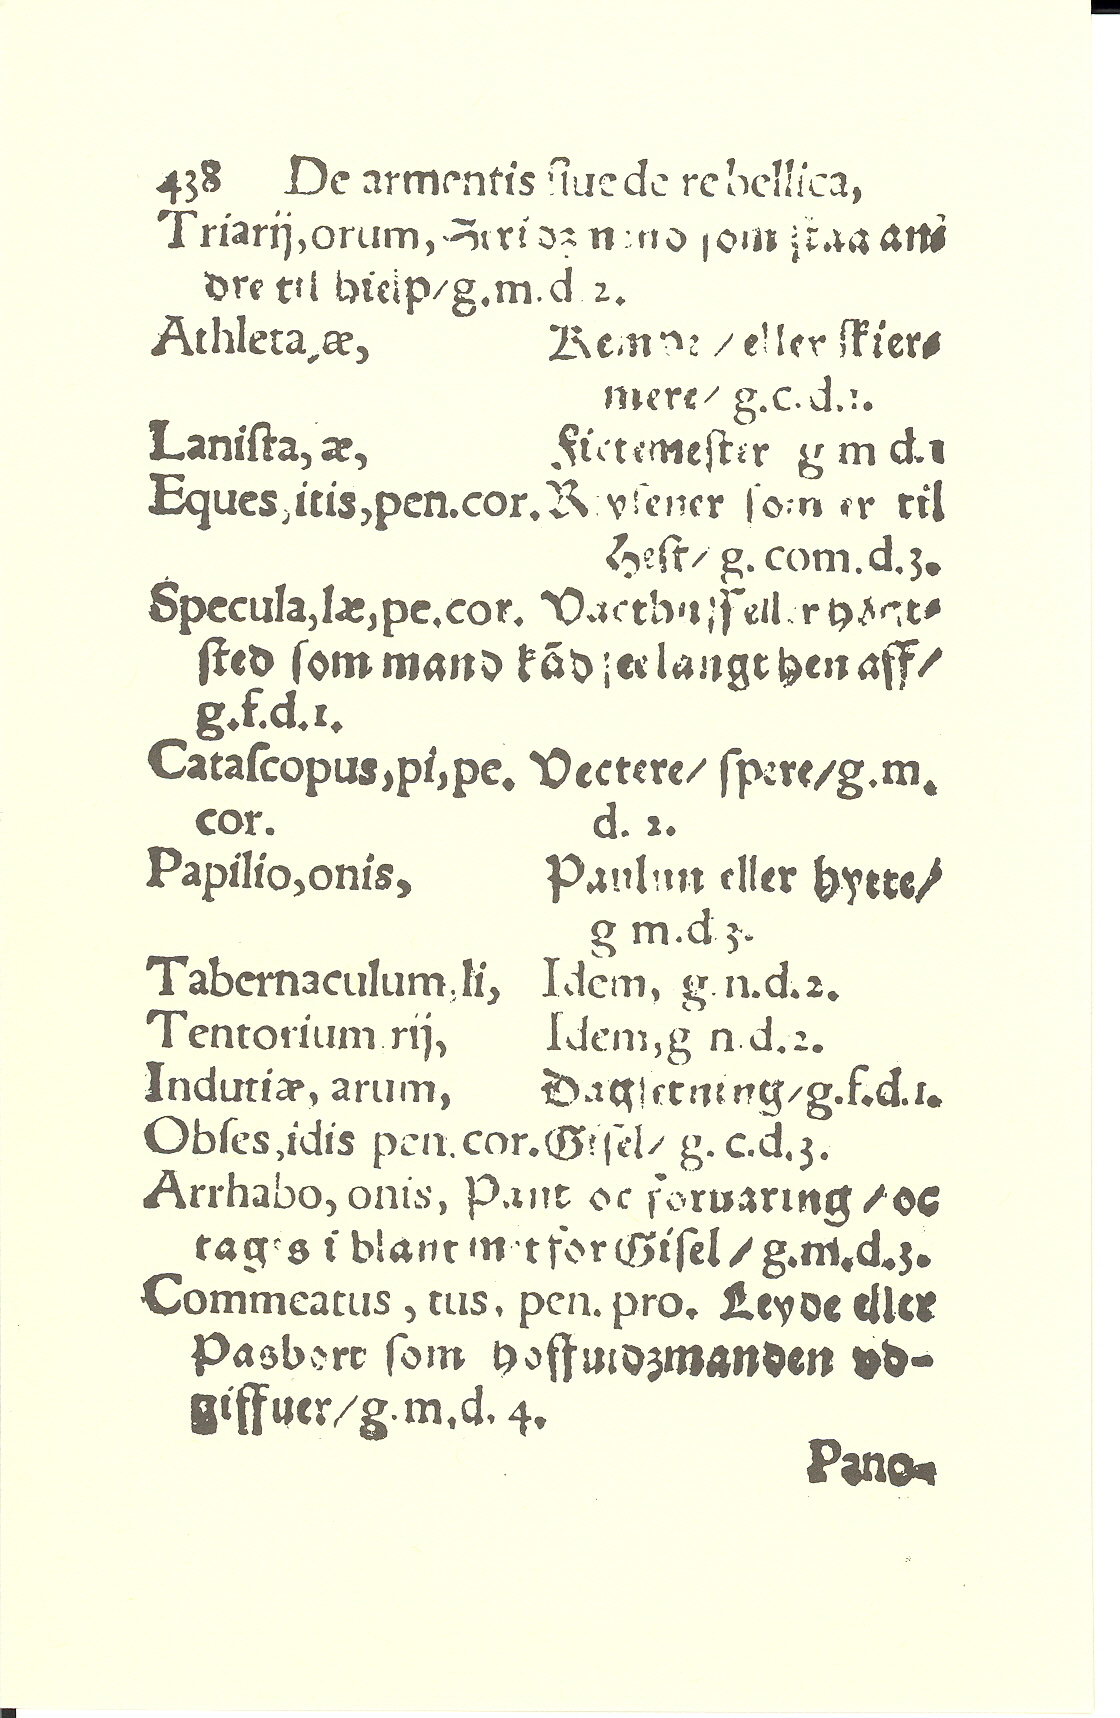 438 De armentis ſiue de re bellica,
Triarij, orum, ſom ſtaa an⸗
dre til hielp/ g.m.d 2.
Athleta, æ, Kempe / eller ſkier⸗
mere/ g.c.d.1.
Laniſta, æ, Fictemeſter g m d.1
Eques, itis, pen.cor. ſom er til
Heſt/ g. com.d.3.
Specula, læ, pe.cor. Vacthuſſ eller
ſted ſom mand kād ſee langt hen aff/
g.f.d.1.
Cataſcopus, pi, pe. Vectere/ ſpere/ g.m.
cor. d. 2.
Papilio, onis, Paulun eller hytte/
g m.d 3.
Tabernaculum, li, Idem, g.n.d.2.
Tentorium rij, Idem, g n.d.2.
Indutiæ, arum, Dagſetning/ g.f.d.1.
Obſes, idis pen.cor. Giſel/ g. c.d.3.
Arrhabo, onis, Pant oc foruaring / oc
tages i blant met for Giſel / g.m.d.3.
Commeatus, tus, pen. pro. Leyde eller
Pasbort ſom hoffuidzmanden vd-
giffuer/ g.m.d. 4.
Pano-